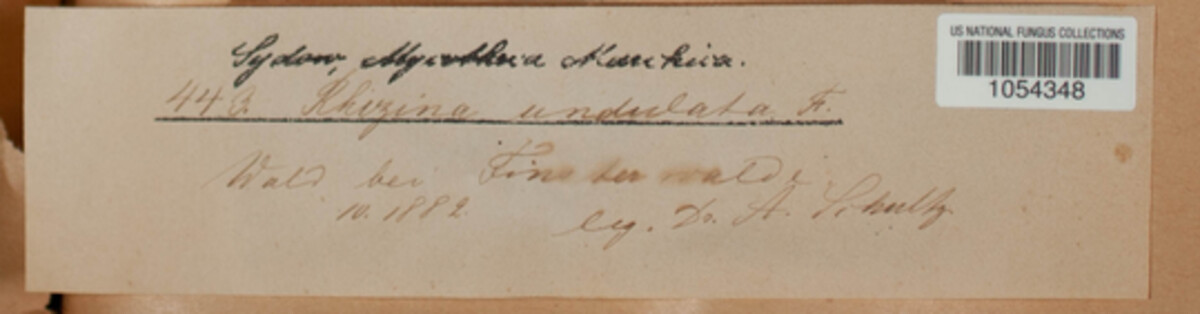 Sydow, Mycotheca Marchica.
US NATIONAL FUNGUS COLLECTIONS
1054348
443. Rhizina undulata Fr.
Wald bei Finsterwalde
10. 1882. leg. Dr. A. Schultz